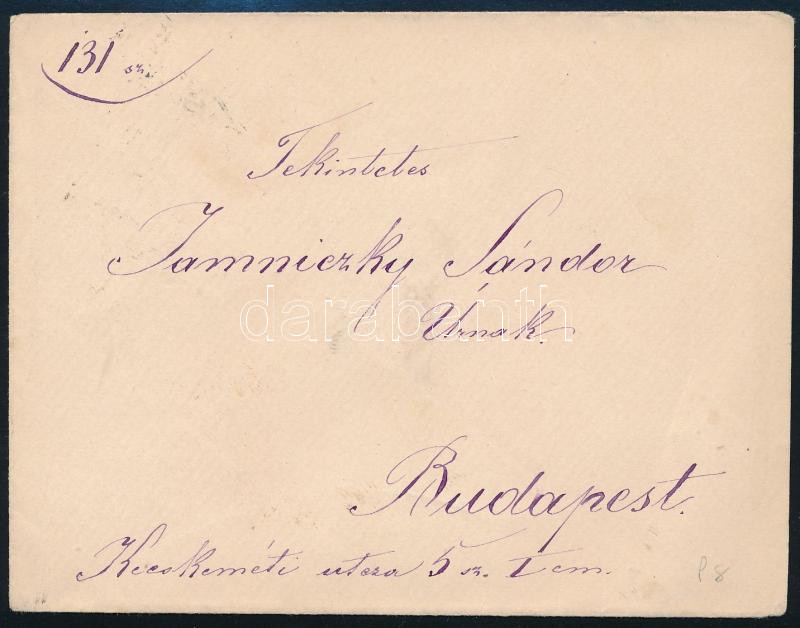 131 sz.
Tekintetes
Jamniczky Sándor
darabanth
Úrnak.
Budapest.
Kecskeméti utcza 5 sz. I em.
P8